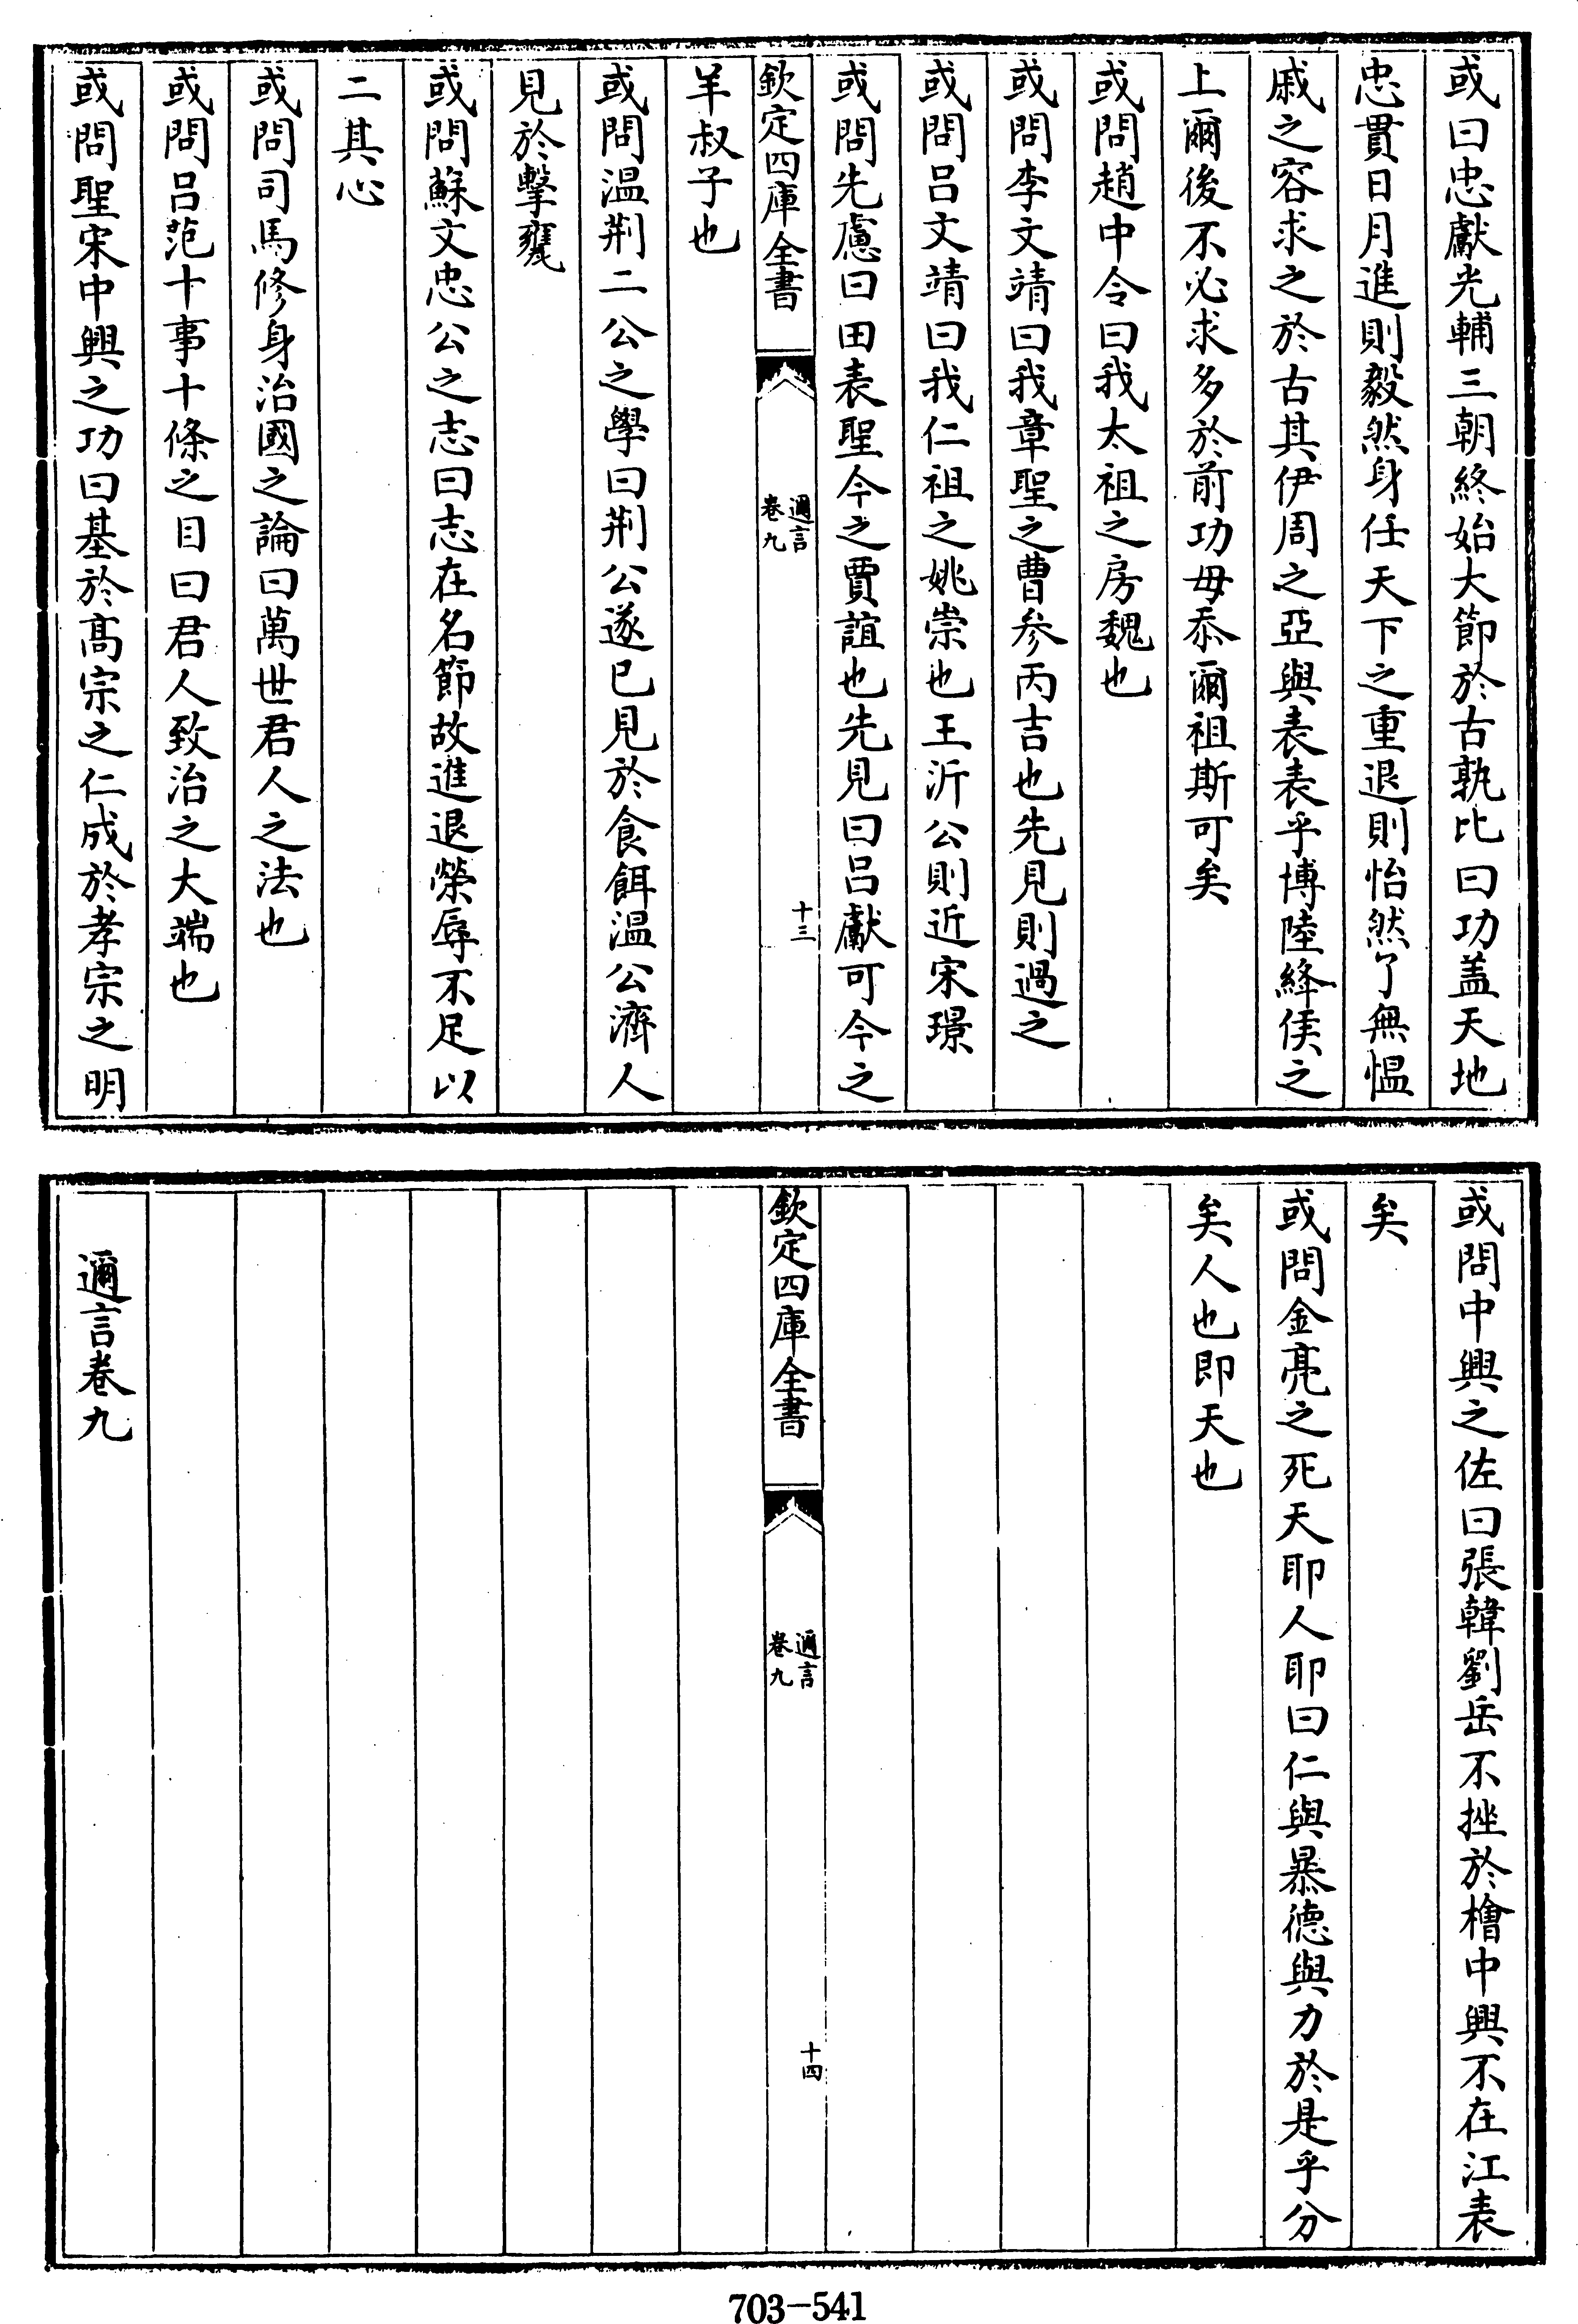 或曰忠獻光輔三朝終始大節於古孰比曰功盖天地
忠貫日月進則毅然身任天下之重退則怡然了無愠
戚之容求之於古其伊周之亞與表表乎博陸絳侯之
上爾後不必求多於前功毋忝爾祖斯可矣
或問趙中令曰我太祖之房魏也
或問李文靖曰我章聖之曹參丙吉也先見則過之
或問吕文靖曰我仁祖之姚崇也王沂公則近宋璟
或問先慮曰田表聖今之賈誼也先見曰吕獻可今之
欽定四庫全書
邇言
卷九
十三
羊叔子也
或問温荆二公之學曰荆公遂已見於食餌温公濟人
見於擊甕
或問蘇文忠公之志曰志在名節故進退榮辱不足以
二其心
或問司馬修身治國之論曰萬世君人之法也
或問吕范十事十條之目曰君人致治之大端也
或問聖宋中興之功曰基於高宗之仁成於孝宗之明
或問中興之佐曰張韓劉岳不挫於檜中興不在江表
矣
或問金亮之死天耶人耶曰仁與暴德與力於是乎分
矣人也即天也
欽定四庫全書
邇言
卷九
十四
邇言卷九
703-541